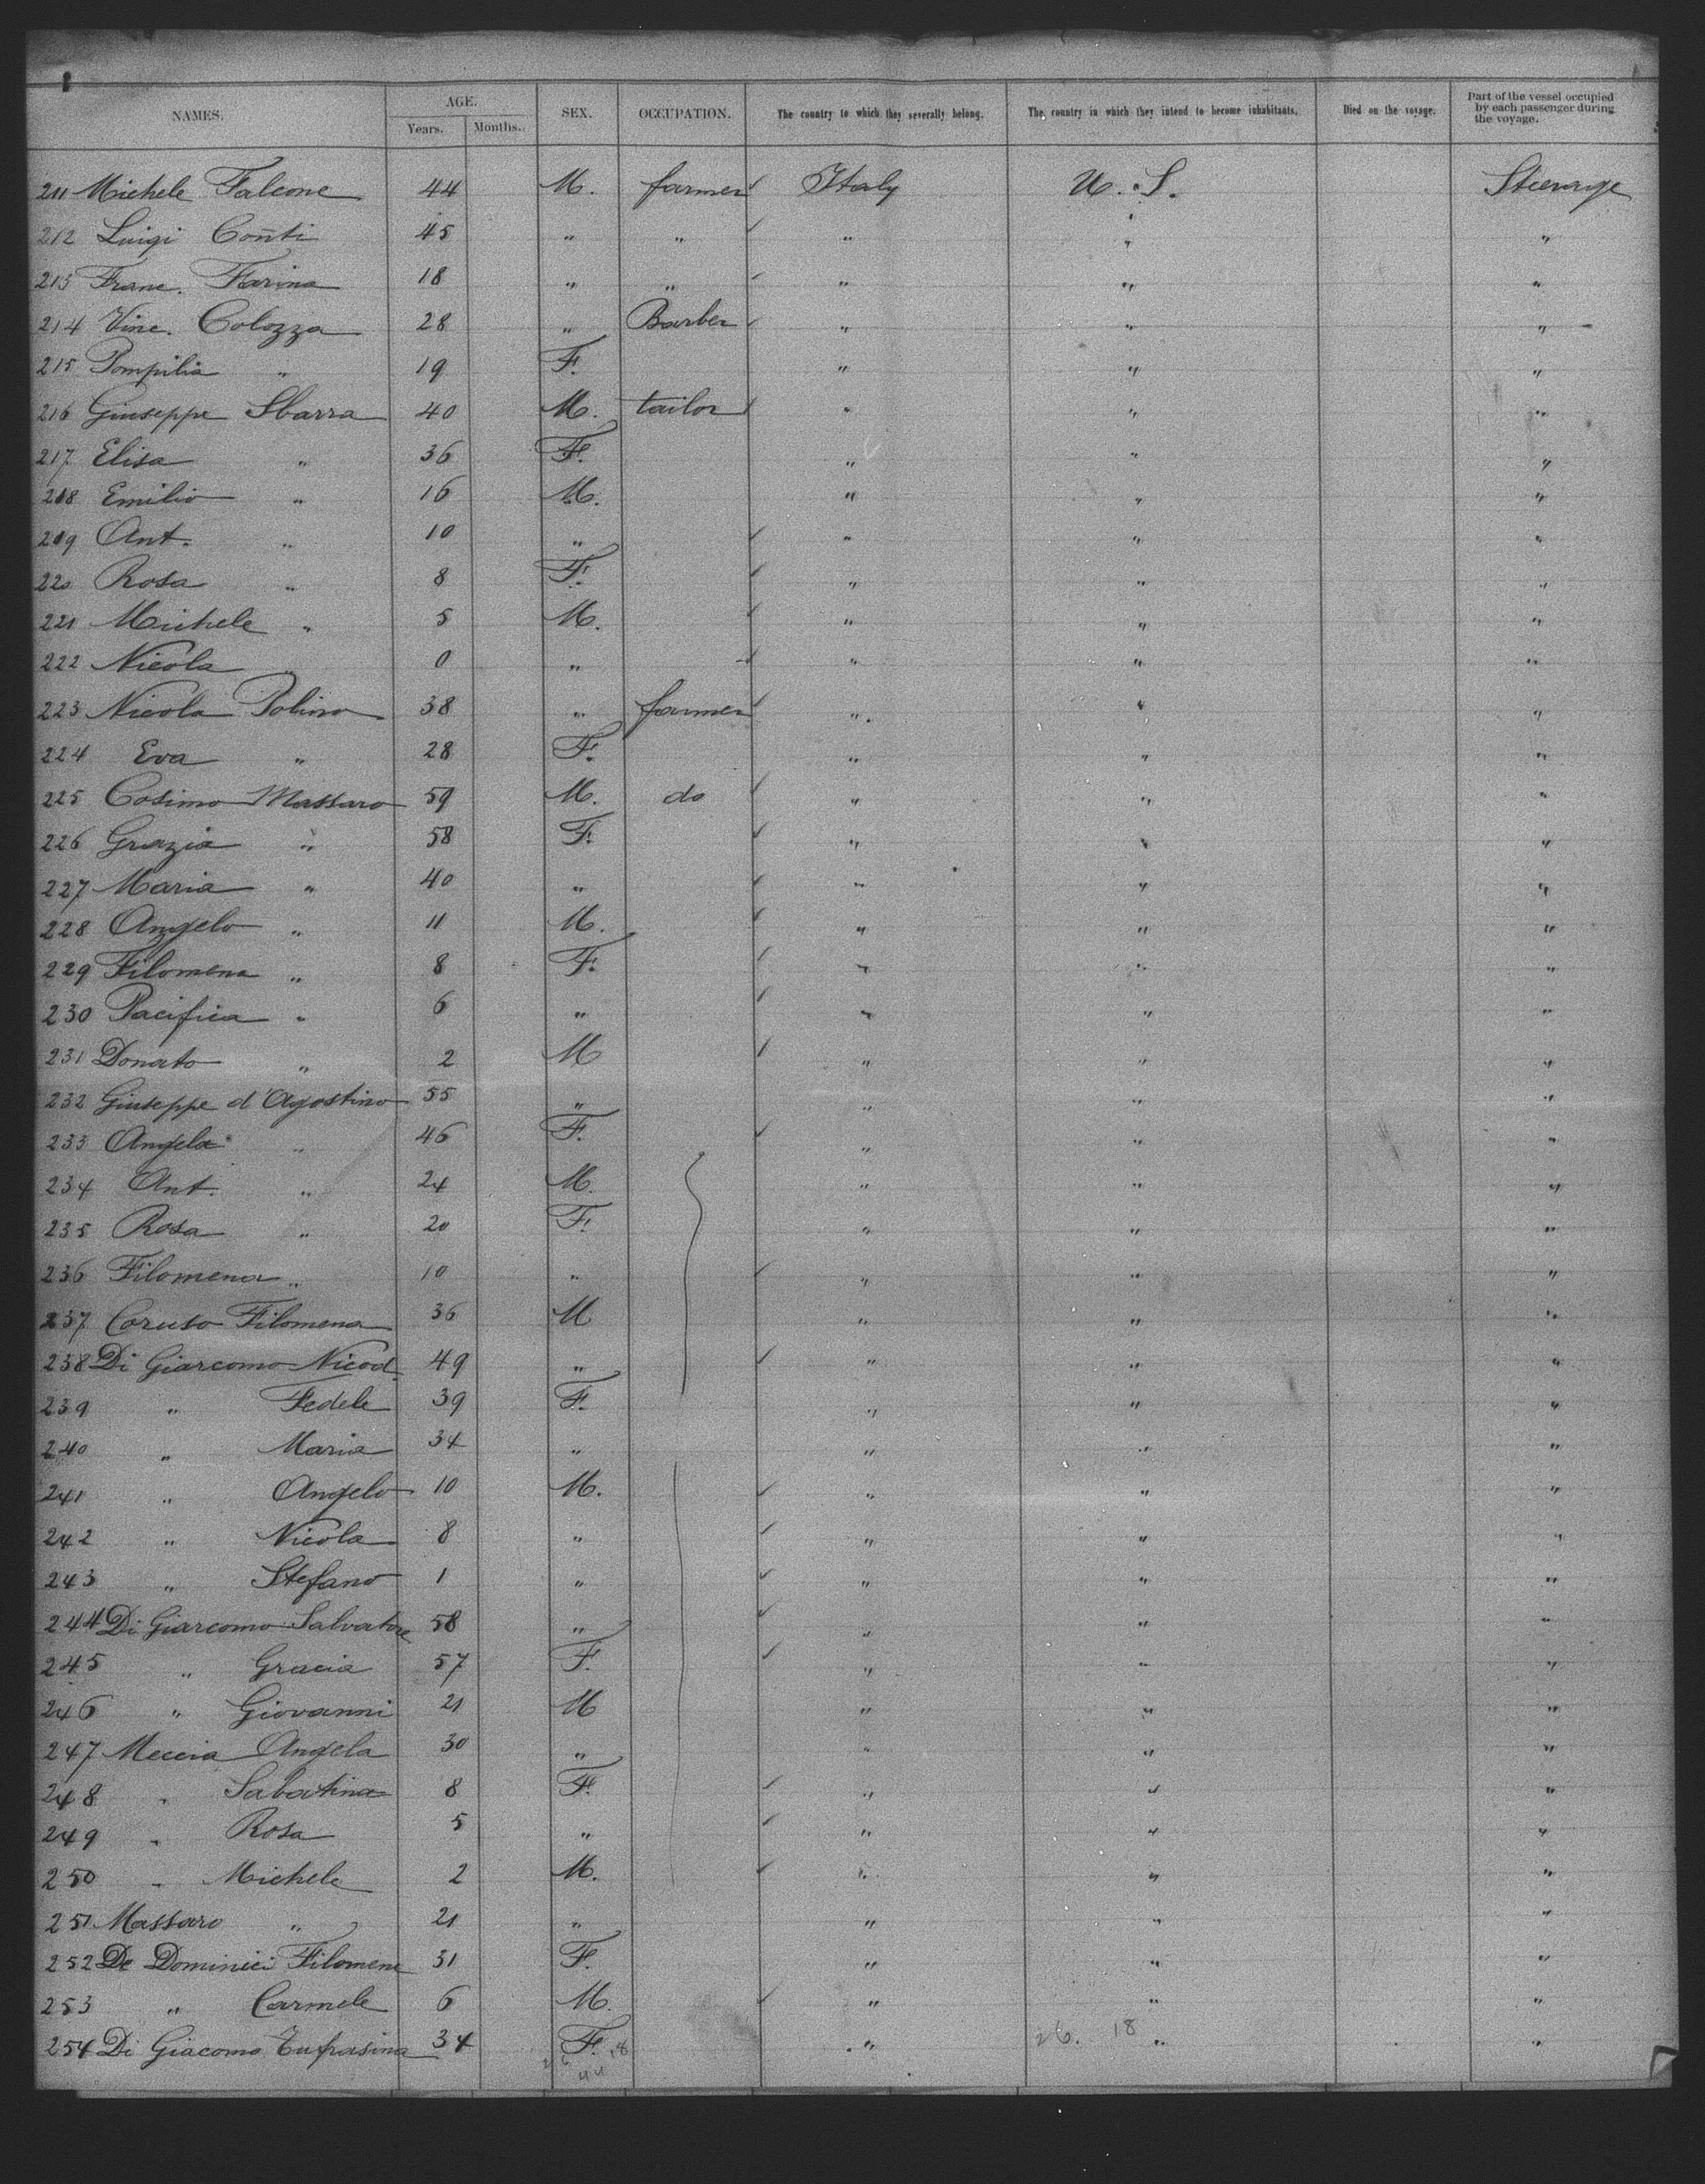 NAMES. AGE. Years. Months. SEX. OCCUPATION. The country to which they severally belong. The country in which they intend to become inhabitants. Died on the voyage. Part of the vessel occupied by each passenger during the voyage.
211 Michele Falcone 44 M. farmer Italy U. S. Steerage
212 Luigi Conti 45 " " " " "
213 Franc. Farina 18 " " " " "
214 Vinc. Colozza 28 " Barber " " "
215 Pompilia " 19 F. " " "
216 Giuseppe Sbarra 40 M. tailor " " "
217 Elisa " 36 F. " " "
218 Emilio " 16 M. " " "
219 Ant. " 10 " " " "
220 Rosa " 8 F. " " "
221 Michele " 5 M. " " "
222 Nicola " 0 " " " "
223 Nicola Polino 38 " farmer " " "
224 Eva " 28 F. " " "
225 Cosimo Massaro 59 M. do " " "
226 Grazia " 58 F. " " "
227 Maria " 40 " " " "
228 Angelo " 11 M. " " "
229 Filomena " 8 F. " " "
230 Pacifica " 6 " " " "
231 Donato " 2 M " " "
232 Giuseppe d'Agostino 55 " " " "
233 Angela " 46 F. " " "
234 Ant. " 24 M. " " "
235 Rosa " 20 F. " " "
236 Filomena " 10 " " " "
237 Caruso Filomena 36 M " " "
238 Di Giarcomo Nicod. 49 " " " "
239 " Fedele 39 F. " " "
240 " Maria 34 " " " "
241 " Angelo 10 M. " " "
242 " Nicola 8 " " " "
243 " Stefano 1 " " " "
244 Di Giarcomo Salvatore 58 " " " "
245 " Gracia 57 F. " " "
246 " Giovanni 21 M " " "
247 Meccia Angela 30 " " " "
248 " Sabatina 8 F. " " "
249 " Rosa 5 " " " "
250 " Michele 2 M. " " "
251 Massaro " 21 " " " "
252 De Dominici Filomene 31 F. " " "
253 " Carmele 6 M. " " "
254 Di Giacomo 34 F. " 26. 18 " "
44